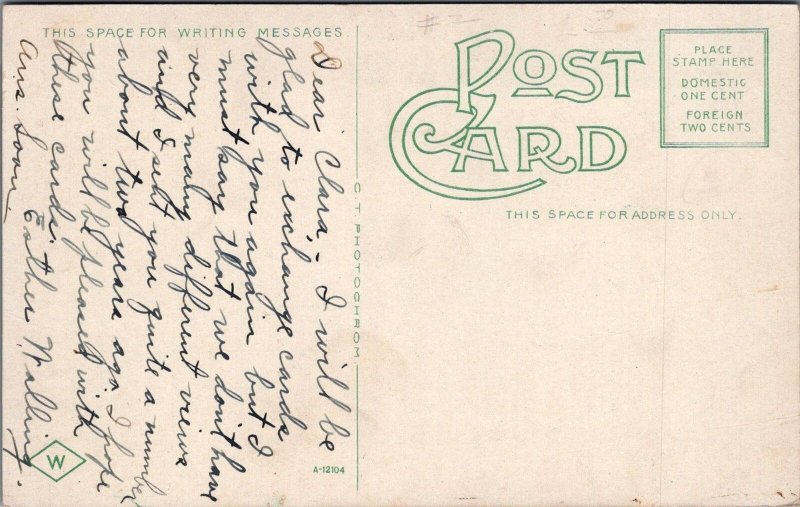 THIS SPACE FOR WRITING MESSAGES
Dear Clara,- I will be
glad to exchange cards
with you again but I
must say that we don't have
very many different views
and I sent you quite a number
about two years ago. I hope
you will be pleased with
these cards.
Ans. Soon Esther Walling.
C T PHOTOCHROM
A-12104
W
# 2
POST CARD
THIS SPACE FOR ADDRESS ONLY.
PLACE
STAMP HERE
DOMESTIC
ONE CENT
FOREIGN
TWO CENTS